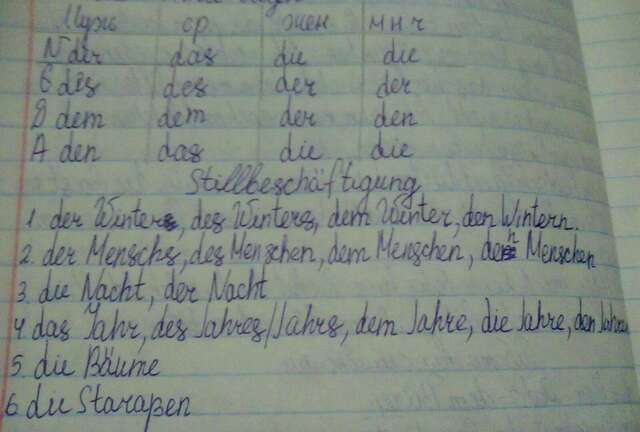 Мужь ср. жен мн ч
N der das die die
G des des der der
D dem dem der den
A den das die die
Stillbeschäftigung
1. der Winters, des Winters, dem Winter, den Wintern.
2. der Menschs, des Menschen, dem Menschen, den Menschen
3. die Nacht, der Nacht
4 das Jahr, des Jahres/Jahrs, dem Jahre, die Jahre, den Jahren
5. die Bäume
6. die Staraßen